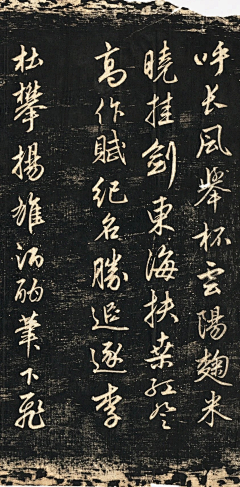 呼长风举杯云阳麹米
晓挂剑东海扶桑红登
高作赋纪名胜追逐李
杜攀扬雄酒酣笔下飞